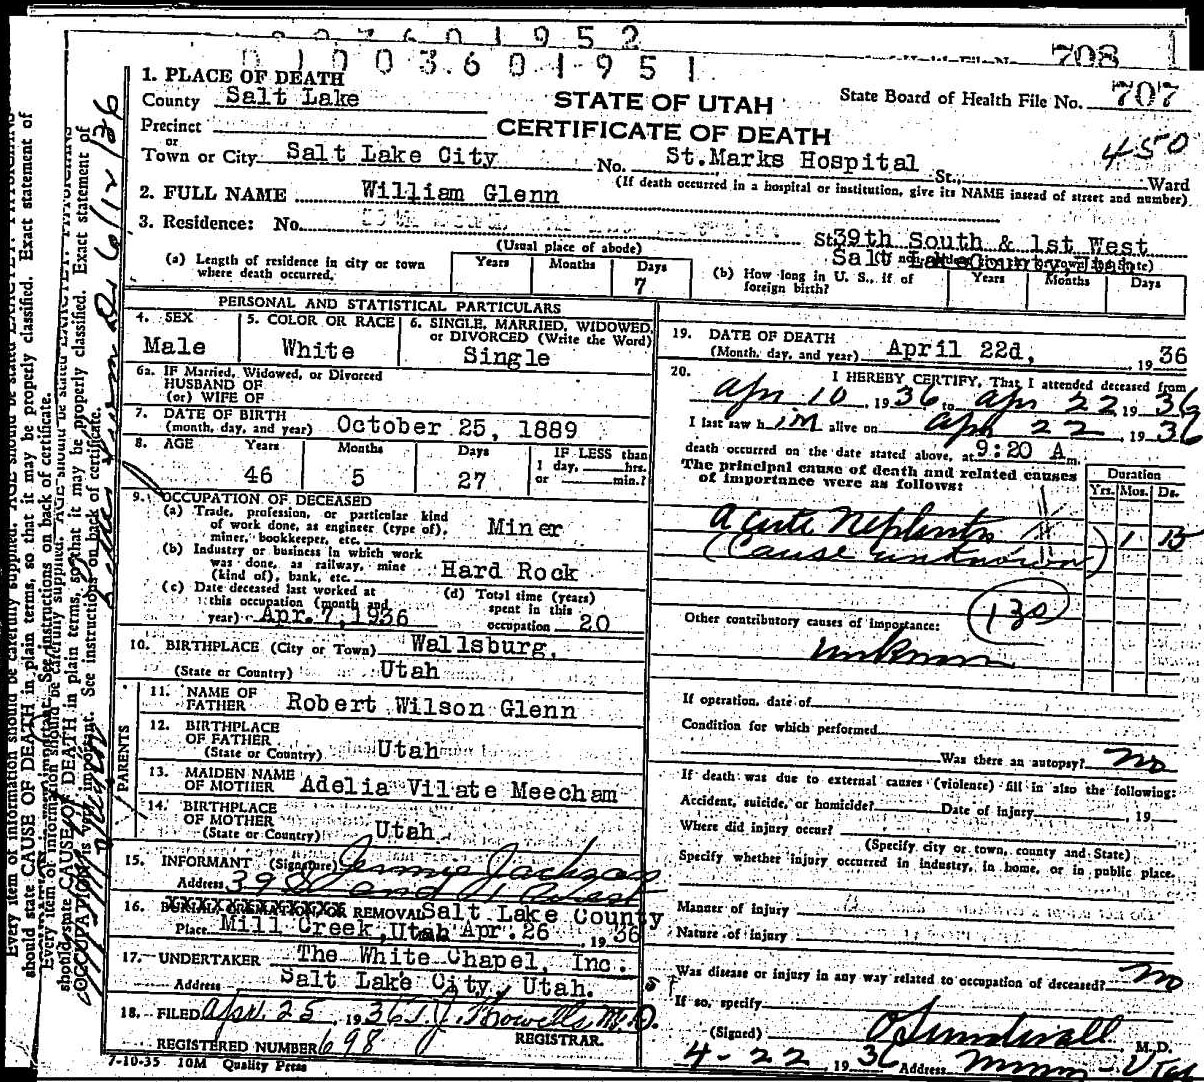 01003601951
708
1. PLACE OF DEATH
County Salt Lake
STATE OF UTAH
CERTIFICATE OF DEATH
State Board of Health File No. 707
Precinct
or
Town or City Salt Lake City No. St.Marks Hospital St., Ward
450
(If death occurred in a hospital or institution, give its NAME insead of street and number)
2. FULL NAME William Glenn
3. Residence: No. St. 39th South & 1st West
(Usual place of abode)
Salt Lake County, Utah
(a) Length of residence in city or town where death occurred. Years Months Days 7
(b) How long in U. S., if of foreign birth? Years Months Days
PERSONAL AND STATISTICAL PARTICULARS
4. SEX Male
5. COLOR OR RACE White
6. SINGLE, MARRIED, WIDOWED, or DIVORCED (Write the Word) Single
6a. IF Married, Widowed, or Divorced
HUSBAND OF
(or) WIFE OF
7. DATE OF BIRTH
(month, day, and year) October 25, 1889
8. AGE Years Months Days IF LESS than
46 5 27 1 day, hrs. or min.?
9. OCCUPATION OF DECEASED
(a) Trade, profession, or particular kind
of work done, as engineer (type of),
miner, bookkeeper, etc. Miner
(b) Industry or business in which work
was done, as railway, mine
(kind of), bank, etc. Hard Rock
(c) Date deceased last worked at
this occupation (month and
year) Apr. 7, 1936
(d) Total time (years)
spent in this
occupation 20
10. BIRTHPLACE (City or Town) Wallsburg,
(State or Country) Utah
PARENTS
11. NAME OF FATHER Robert Wilson Glenn
12. BIRTHPLACE OF FATHER
(State or Country) Utah
13. MAIDEN NAME OF MOTHER Adelia Vilate Meecham
14. BIRTHPLACE OF MOTHER
(State or Country) Utah
15. INFORMANT (Signature) Jennie Jackson
Address 39 So and 1 West
16. BURIAL, CREMATION, OR REMOVAL Salt Lake County
Place Mill Creek, Utah Apr. 26, 1936
17. UNDERTAKER The White Chapel, Inc.
Address Salt Lake City, Utah.
18. FILED Apr. 25 1936 T. J. Howells M.D.
REGISTRAR.
REGISTERED NUMBER 698
7-10-35 10M Quality Press
19. DATE OF DEATH
(Month, day, and year) April 22d, 1936
20. I HEREBY CERTIFY, That I attended deceased from
Apr 10, 1936 to Apr 22 1936
I last saw h im alive on Apr 22, 1936
death occurred on the date stated above, at 9:20 A m.
The principal cause of death and related causes
of importance were as follows:
Duration
Yrs. Mos. Ds.
Acute Nephritis
(Cause unknown) 1 15
130
Other contributory causes of importance:
unknown
If operation, date of
Condition for which performed
Was there an autopsy? no
If death was due to external causes (violence) fill in also the following:
Accident, suicide, or homicide? Date of injury , 19
Where did injury occur?
(Specify city or town, county and State)
Specify whether injury occurred in industry, in home, or in public place.
Manner of injury
Nature of injury
Was disease or injury in any way related to occupation of deceased? no
If so, specify
(Signed) O Sundwall M.D.
4-22 1936 Address